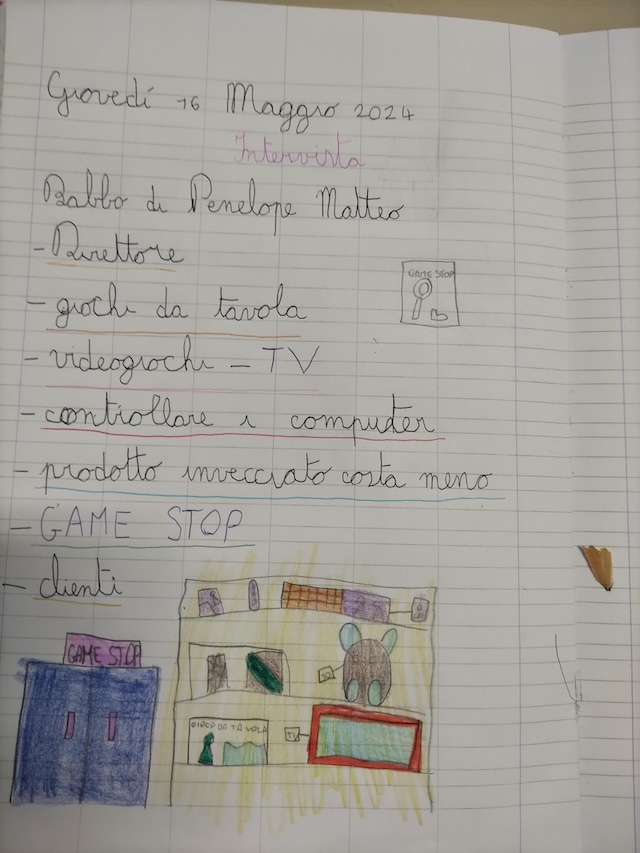 Giovedí 16 Maggio 2024
Intervista
Babbo di Penelope Matteo
- Direttore
GAME STOP
- giochi da tavola
- videogiochi - TV
- controllare i computer
- prodotto invecciato costa meno
- GAME STOP
- clienti
GAME STOP
GIOCO DA TAVOLA
TV